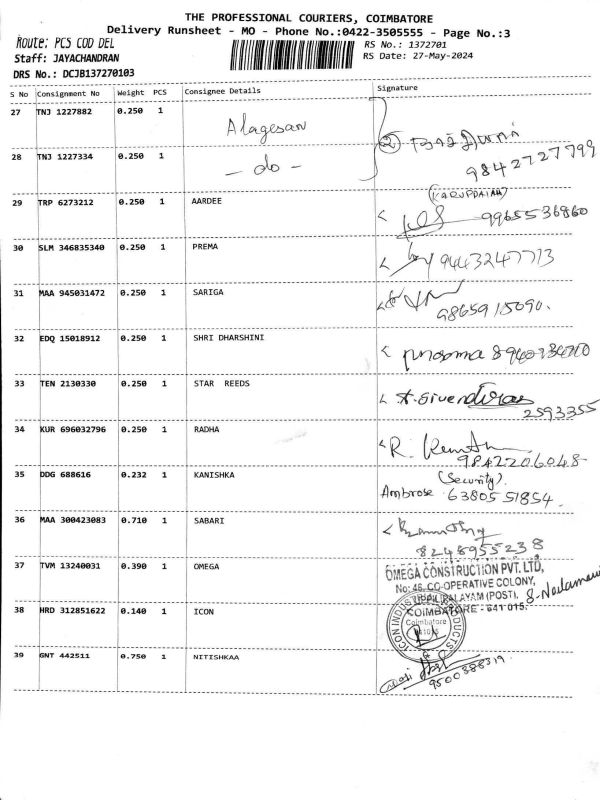 THE PROFESSIONAL COURIERS, COIMBATORE
Delivery Runsheet - MO - Phone No.:0422-3505555 - Page No.:3
Route: PCS COD DEL
RS No.: 1372701
Staff: JAYACHANDRAN
RS Date: 27-May-2024
DRS No.: DCJB137270103
S No Consignment No Weight PCS Consignee Details Signature
27 TNJ 1227882 0.250 1 Alagesan
28 TNJ 1227334 0.250 1 - do - 2
9842727799
29 TRP 6273212 0.250 1 AARDEE
(KARUPPAIAH)
9965536860
30 SLM 346835340 0.250 1 PREMA 9443247713
31 MAA 945031472 0.250 1 SARIGA
9865915090.
32 EDQ 15018912 0.250 1 SHRI DHARSHINI
33 TEN 2130330 0.250 1 STAR REEDS
2593355
34 KUR 696032796 0.250 1 RADHA R.
9842206048
35 DDG 688616 0.232 1 KANISHKA (Security).
Ambrose 6380551854.
36 MAA 300423083 0.710 1 SABARI
8248955238
37 TVM 13240031 0.390 1 OMEGA OMEGA CONSTRUCTION PVT. LTD,
No: 46, CO-OPERATIVE COLONY,
UPPILIPALAYAM (POST),
COIMBATORE - 641 015.
38 HRD 312851622 0.140 1 ICON
ICON INDUSTRIAL PRODUCTS
Coimbatore
39 GNT 442511 0.750 1 NITISHKAA
9500388319.